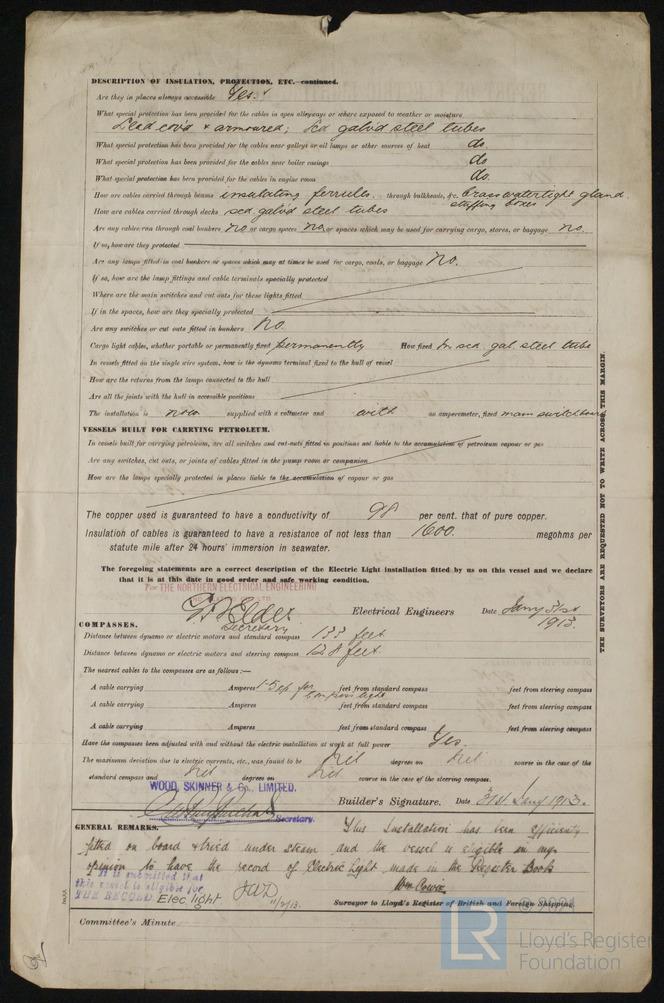 DESCRIPTION OF INSULATION, PROTECTION, ETC.—continued.
Are they in places always accessible Yes.
What special protection has been provided for the cables in open alleyways or where exposed to weather or moisture
Lead cov'd & armoured; scd galv'd steel tubes
What special protection has been provided for the cables near galleys or oil lamps or other sources of heat do.
What special protection has been provided for the cables near boiler casings do
What special protection has been provided for the cables in engine room do.
How are cables carried through beams insulating ferrules. through bulkheads, &c. brass watertight gland
stuffing boxes
How are cables carried through decks scd. galv'd steel tubes
Are any cables run through coal bunkers no or cargo spaces no or spaces which may be used for carrying cargo, stores, or baggage no.
If so, how are they protected
Are any lamps fitted in coal bunkers or spaces which may at times be used for cargo, coals, or baggage No.
If so, how are the lamp fittings and cable terminals specially protected
Where are the main switches and cut outs for these lights fitted
If in the spaces, how are they specially protected
Are any switches or cut outs fitted in bunkers No.
Cargo light cables, whether portable or permanently fixed permanently How fixed In scd. gal. steel tube
In vessels fitted on the single wire system, how is the dynamo terminal fixed to the hull of vessel
How are the returns from the lamps connected to the hull
Are all the joints with the hull in accessible positions
The installation is now supplied with a voltmeter and with an amperemeter, fixed main switchboard
VESSELS BUILT FOR CARRYING PETROLEUM.
In vessels built for carrying petroleum, are all switches and cut-outs fitted in positions not liable to the accumulation of petroleum vapour or gas
Are any switches, cut outs, or joints of cables fitted in the pump room or companion
How are the lamps specially protected in places liable to the accumulation of vapour or gas
The copper used is guaranteed to have a conductivity of 98 per cent. that of pure copper.
Insulation of cables is guaranteed to have a resistance of not less than 1600. megohms per
statute mile after 24 hours' immersion in seawater.
The foregoing statements are a correct description of the Electric Light installation fitted by us on this vessel and we declare
that it is at this date in good order and safe working condition.
For THE NORTHERN ELECTRICAL ENGINEERING
Elder Electrical Engineers Date Jany 31st
Secretary 1913.
COMPASSES.
Distance between dynamo or electric motors and standard compass 133 feet
Distance between dynamo or electric motors and steering compass 128 feet.
The nearest cables to the compasses are as follows:—
A cable carrying Amperes 1-5 cp for compass light feet from standard compass feet from steering compass
A cable carrying Amperes feet from standard compass feet from steering compass
A cable carrying Amperes feet from standard compass feet from steering compass
Have the compasses been adjusted with and without the electric installation at work at full power Yes.
The maximum deviation due to electric currents, etc., was found to be Nil degrees on Nil course in the case of the
standard compass and Nil degrees on Nil course in the case of the steering compass.
WOOD, SKINNER & Co. LIMITED.
Secretary. Builder's Signature. Date 31st Jany 1913.
GENERAL REMARKS. This Installation has been efficiently
fitted on board & tried under steam and the vessel is eligible in my
opinion to have the record of Electric Light made in the Register Book
It is submitted that
this vessel is eligible for
THE RECORD Elec light
11/2/13.
Surveyor to Lloyd's Register of British and Foreign Shipping.
Committee's Minute
THE SURVEYORS ARE REQUESTED NOT TO WRITE ACROSS THIS MARGIN.
LR
Lloyd's Register
Foundation